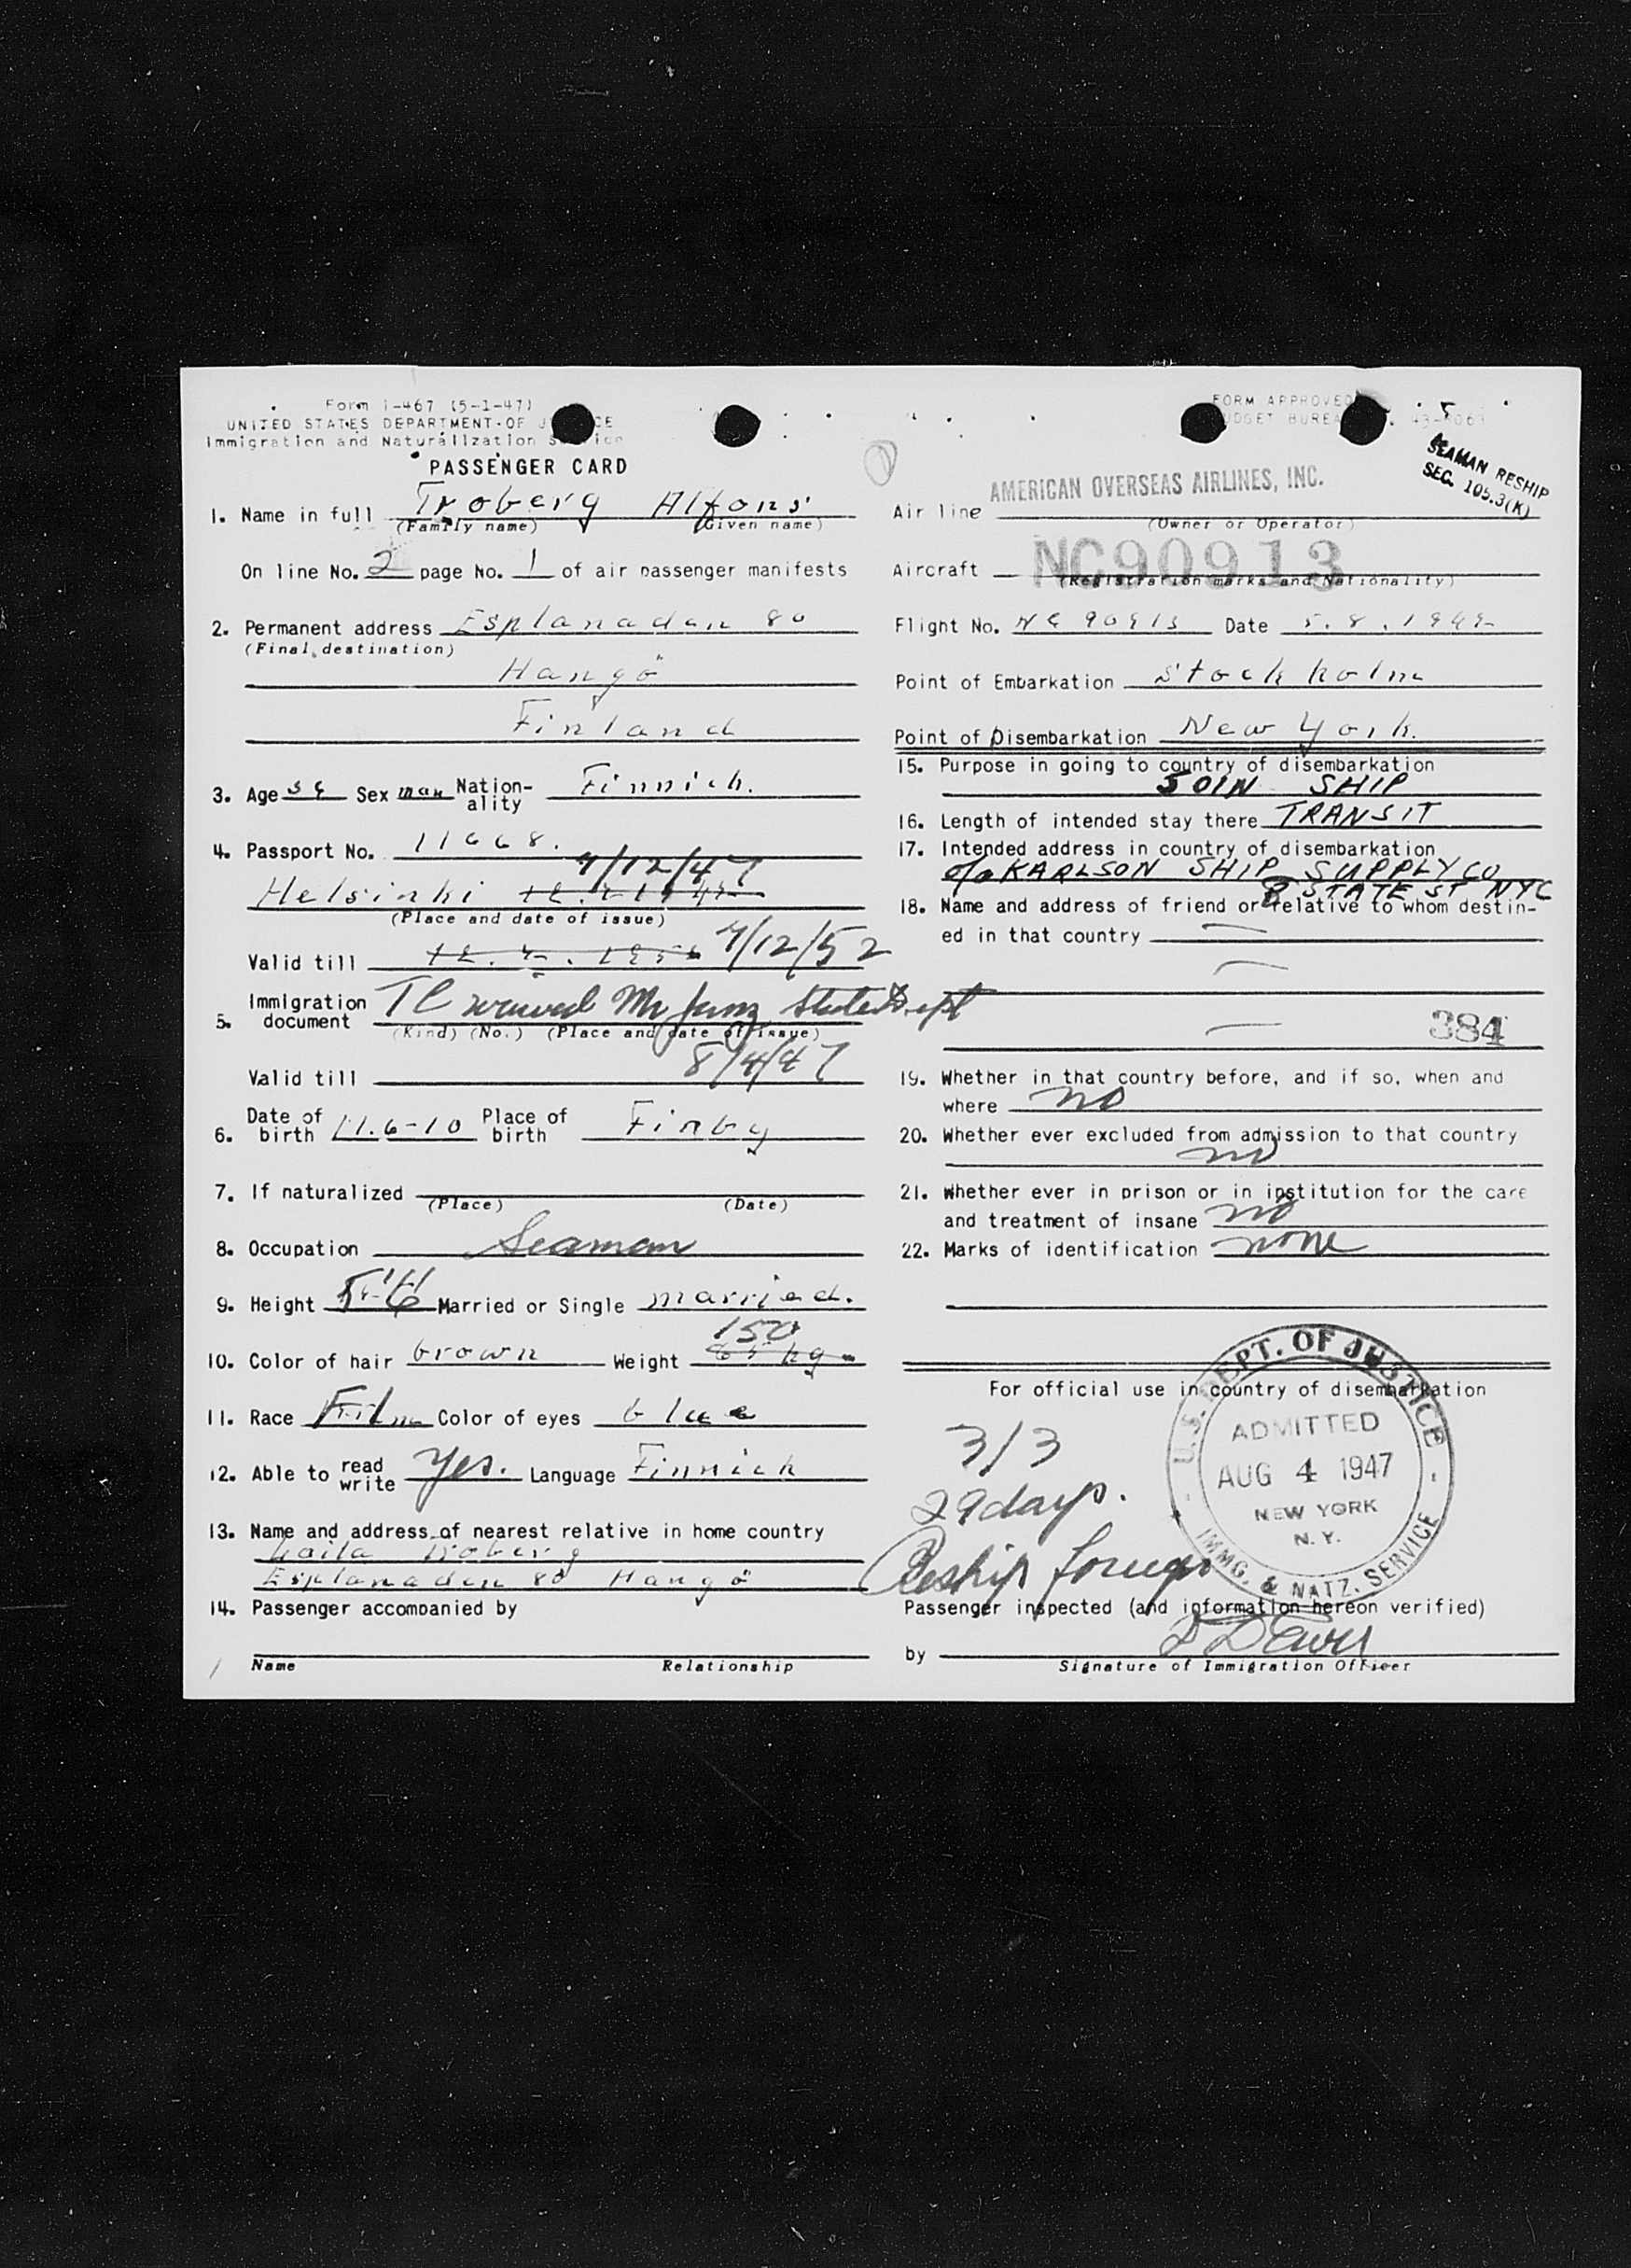 Form I-467 (5-1-47)
UNITED STATES DEPARTMENT OF J CE
Immigration and Naturalization S ice
PASSENGER CARD
1. Name in full Troberg Alfons
(Family name) (Given name)
On line No. 2 page No. 1 of air passenger manifests
2. Permanent address Esplanaden 80
(Final destination)
Hangö
Finland
3. Age Sex man Nation-ality Finnich.
4. Passport No. 11668.
7/12/47
Helsinki
(Place and date of issue)
Valid till 7/12/52
5. Immigration document TC waived Mr State Dept
(Kind) (No.) (Place and date of issue)
8/4/47
Valid till
6. Date of birth 11.6-10 Place of birth Finby
7. If naturalized
(Place) (Date)
8. Occupation Seaman
9. Height Married or Single married.
150
10. Color of hair brown Weight 65 kg
11. Race Color of eyes blue
12. Able to read write Yes. Language Finnich
13. Name and address of nearest relative in home country
Laila Troberg
Esplanaden 80 Hangö
14. Passenger accompanied by
Name Relationship
FORM APPROVED
UDGET BUREA
SEAMAN RESHIP
SEC. 105.3(K)
AMERICAN OVERSEAS AIRLINES, INC.
Air line
(Owner or Operator)
Aircraft NC90913
(Registration marks and Nationality)
Flight No. NC 90913 Date 5.8.1947
Point of Embarkation Stockholm
Point of Disembarkation New York.
15. Purpose in going to country of disembarkation
JOIN SHIP
16. Length of intended stay there TRANSIT
17. Intended address in country of disembarkation
c/o KARLSON SHIP SUPPLY CO
8 STATE ST NYC
18. Name and address of friend or relative to whom destin-
ed in that country
384
19. Whether in that country before, and if so, when and
where no
20. Whether ever excluded from admission to that country
no
21. Whether ever in prison or in institution for the care
and treatment of insane no
22. Marks of identification none
For official use in country of disembarkation
3/3
29 days.
Reship foreign
U.S. DEPT. OF JUSTICE
ADMITTED
AUG 4 1947
NEW YORK
N. Y.
IMMG. & NATZ. SERVICE
Passenger inspected (and information hereon verified)
by
Signature of Immigration Officer